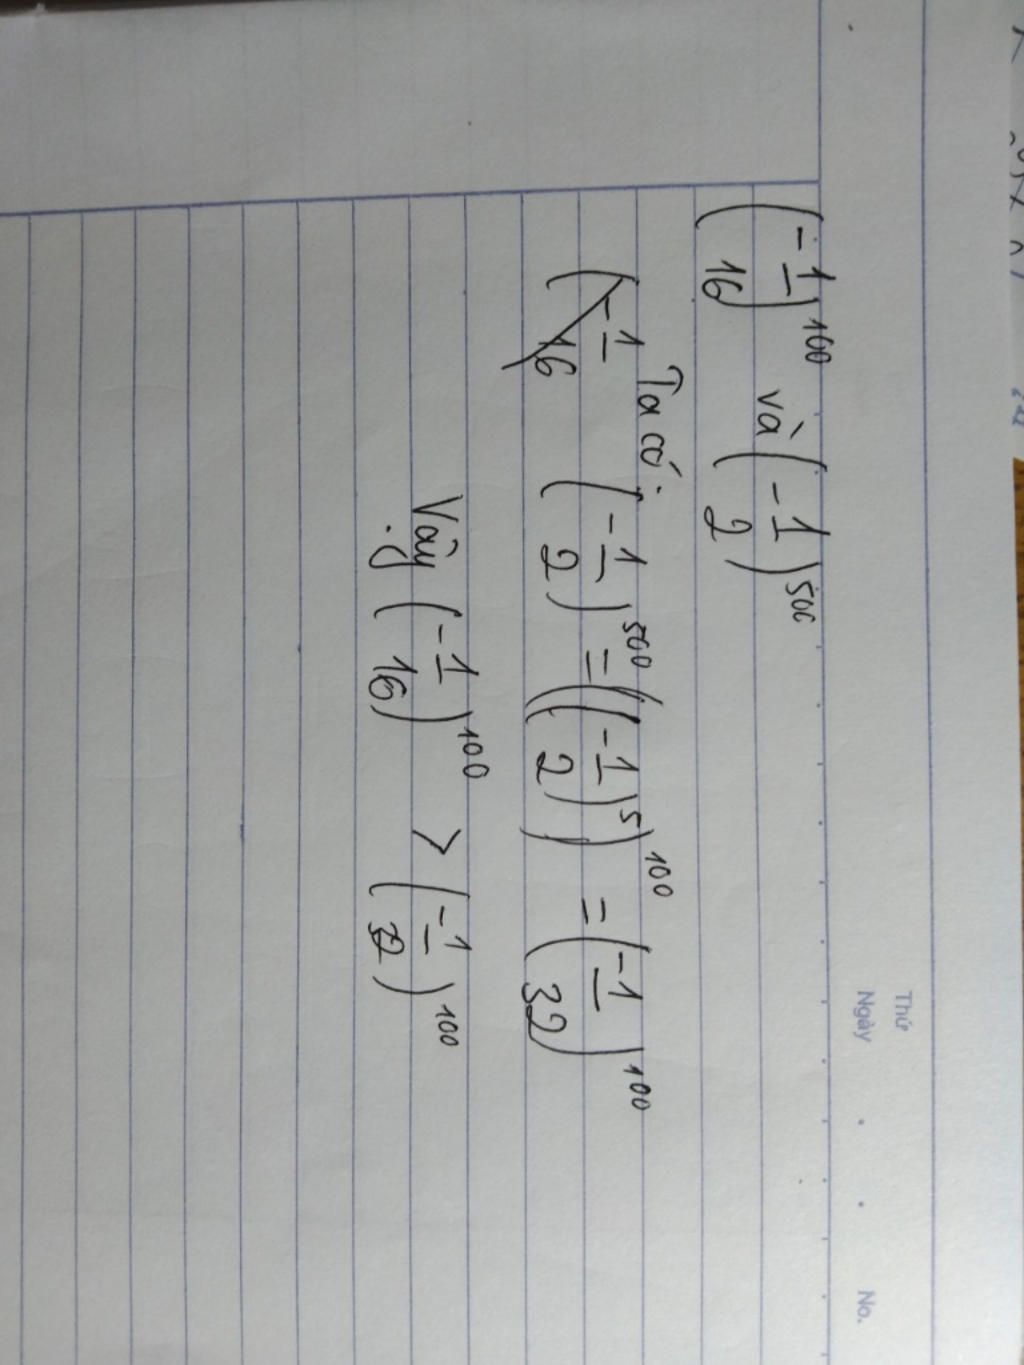 Thứ
Ngày . . No.
(-1/16)^100 và (-1/2)^500
Ta có:
(-1/16 (-1/2)^500 = ((-1/2)^5)^100 = (-1/32)^100
Vậy (-1/16)^100 > (-1/2)^100